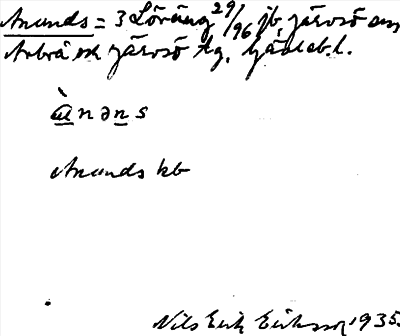 Anunds = 3 Löräng 29/96 jb, Järvsö sn
Arbrå och Järvsö tg, Gävleb. l.
ànəns
Anunds kb
Nils Erik Eriksson 1935.